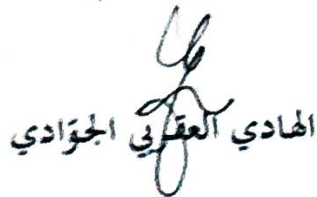 الهادي العقربي الجوّادي